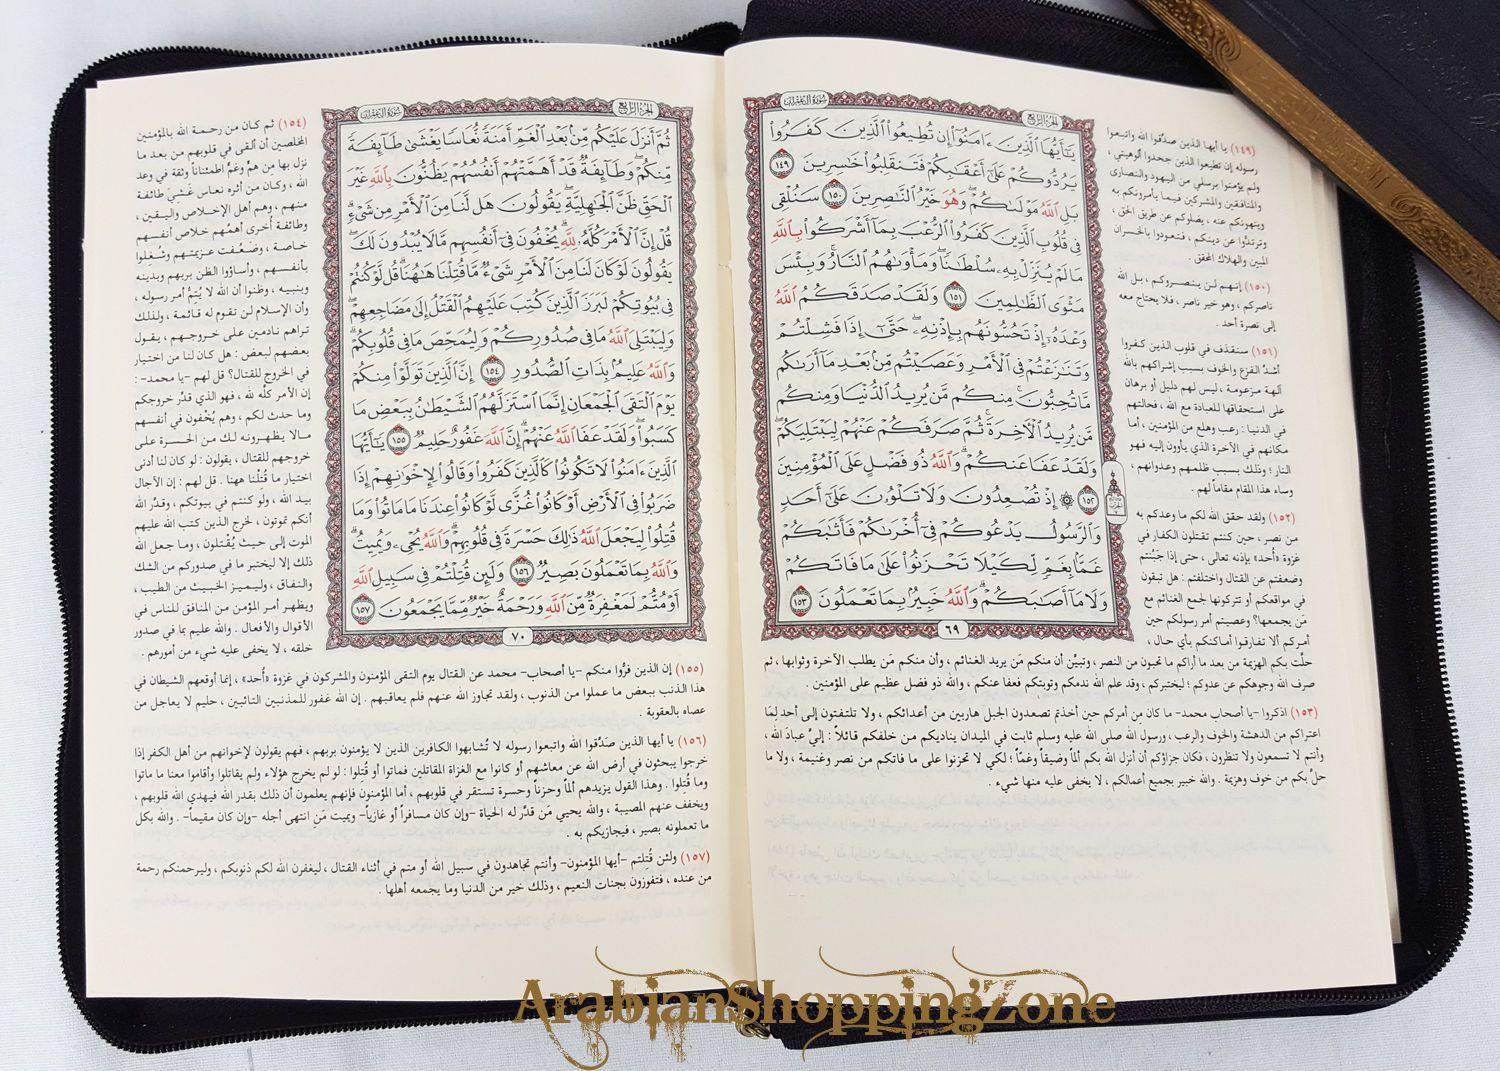 سورة آل عمران
الجزء الرابع
يَٰٓأَيُّهَا ٱلَّذِينَ ءَامَنُوٓا۟ إِن تُطِيعُوا۟ ٱلَّذِينَ كَفَرُوا۟
يَرُدُّوكُمْ عَلَىٰٓ أَعْقَٰبِكُمْ فَتَنقَلِبُوا۟ خَٰسِرِينَ ١٤٩
بَلِ ٱللَّهُ مَوْلَىٰكُمْ وَهُوَ خَيْرُ ٱلنَّٰصِرِينَ ١٥٠ سَنُلْقِى
فِى قُلُوبِ ٱلَّذِينَ كَفَرُوا۟ ٱلرُّعْبَ بِمَآ أَشْرَكُوا۟ بِٱللَّهِ
مَا لَمْ يُنَزِّلْ بِهِۦ سُلْطَٰنًا وَمَأْوَىٰهُمُ ٱلنَّارُ وَبِئْسَ
مَثْوَى ٱلظَّٰلِمِينَ ١٥١ وَلَقَدْ صَدَقَكُمُ ٱللَّهُ
وَعْدَهُۥٓ إِذْ تَحُسُّونَهُم بِإِذْنِهِۦ حَتَّىٰٓ إِذَا فَشِلْتُمْ
وَتَنَٰزَعْتُمْ فِى ٱلْأَمْرِ وَعَصَيْتُم مِّنۢ بَعْدِ مَآ أَرَىٰكُم
مَّا تُحِبُّونَ مِنكُم مَّن يُرِيدُ ٱلدُّنْيَا وَمِنكُم
مَّن يُرِيدُ ٱلْءَاخِرَةَ ثُمَّ صَرَفَكُمْ عَنْهُمْ لِيَبْتَلِيَكُمْ
وَلَقَدْ عَفَا عَنكُمْ وَٱللَّهُ ذُو فَضْلٍ عَلَى ٱلْمُؤْمِنِينَ
١٥٢ ۞ إِذْ تُصْعِدُونَ وَلَا تَلْوُۥنَ عَلَىٰٓ أَحَدٍ
وَٱلرَّسُولُ يَدْعُوكُمْ فِىٓ أُخْرَىٰكُمْ فَأَثَٰبَكُمْ
غَمًّۢا بِغَمٍّ لِّكَيْلَا تَحْزَنُوا۟ عَلَىٰ مَا فَاتَكُمْ
وَلَا مَآ أَصَٰبَكُمْ وَٱللَّهُ خَبِيرٌۢ بِمَا تَعْمَلُونَ ١٥٣
٦٩
(١٤٩) يا أيها الذين صدَّقوا الله واتبعوا
رسوله إن تطيعوا الذين جحدوا ألوهيتي ،
ولم يؤمنوا برسلي من اليهود والنصارى
والمنافقين والمشركين فيما يأمرونكم به
وينهونكم عنه ، يضلوكم عن طريق الحق ،
وترتدُّوا عن دينكم ، فتعودوا بالخسران
المبين والهلاك المحقق .
(١٥٠) إنهم لن ينصروكم ، بل الله
ناصركم ، وهو خير ناصر ، فلا يحتاج معه
إلى نصرة أحد .
(١٥١) سنقذف في قلوب الذين كفروا
أشدَّ الفزع والخوف بسبب إشراكهم بالله
آلهة مزعومة ، ليس لهم دليل أو برهان
على استحقاقها للعبادة مع الله ، فحالتهم
في الدنيا : رعب وهلع من المؤمنين ، أما
مكانهم في الآخرة الذي يأوون إليه فهو
النار ؛ وذلك بسبب ظلمهم وعدوانهم ،
وساء هذا المقام مقاماً لهم .
(١٥٢) ولقد حقق الله لكم ما وعدكم به
من نصر ، حين كنتم تقتلون الكفار في
غزوة «أُحد» بإذنه تعالى ، حتى إذا جَبُنتم
وضعفتم عن القتال واختلفتم : هل تبقون
في مواقعكم أو تتركونها لجمع الغنائم مع
مَن يجمعها؟ وعصيتم أمر رسولكم حين
أمركم ألا تفارقوا أماكنكم بأي حال ،
حلَّت بكم الهزيمة من بعد ما أراكم ما تحبون من النصر ، وتبيَّن أن منكم مَن يريد الغنائم ، وأن منكم مَن يطلب الآخرة وثوابها ، ثم
صرف الله وجوهكم عن عدوكم ؛ ليختبركم ، وقد علم الله ندمكم وتوبتكم فعفا عنكم ، والله ذو فضل عظيم على المؤمنين .
(١٥٣) اذكروا –يا أصحاب محمد– ما كان من أمركم حين أخذتم تصعدون الجبل هاربين من أعدائكم ، ولا تلتفتون إلى أحد لِمَا
اعتراكم من الدهشة والخوف والرعب ، ورسول الله صلى الله عليه وسلم ثابت في الميدان يناديكم من خلفكم قائلاً : إليَّ عبادَ الله ،
وأنتم لا تسمعون ولا تنظرون ، فكان جزاؤكم أن أنزل الله بكم ألماً وضيقاً وغمّاً ؛ لكي لا تحزنوا على ما فاتكم من نصر وغنيمة ، ولا ما
حلَّ بكم من خوف وهزيمة . والله خبير بجميع أعمالكم ، لا يخفى عليه منها شيء .
سورة آل عمران
الجزء الرابع
ثُمَّ أَنزَلَ عَلَيْكُم مِّنۢ بَعْدِ ٱلْغَمِّ أَمَنَةً نُّعَاسًا يَغْشَىٰ طَآئِفَةً
مِّنكُمْ وَطَآئِفَةٌ قَدْ أَهَمَّتْهُمْ أَنفُسُهُمْ يَظُنُّونَ بِٱللَّهِ غَيْرَ
ٱلْحَقِّ ظَنَّ ٱلْجَٰهِلِيَّةِ يَقُولُونَ هَل لَّنَا مِنَ ٱلْأَمْرِ مِن شَىْءٍ
قُلْ إِنَّ ٱلْأَمْرَ كُلَّهُۥ لِلَّهِ يُخْفُونَ فِىٓ أَنفُسِهِم مَّا لَا يُبْدُونَ لَكَ
يَقُولُونَ لَوْ كَانَ لَنَا مِنَ ٱلْأَمْرِ شَىْءٌ مَّا قُتِلْنَا هَٰهُنَا قُل لَّوْ كُنتُمْ
فِى بُيُوتِكُمْ لَبَرَزَ ٱلَّذِينَ كُتِبَ عَلَيْهِمُ ٱلْقَتْلُ إِلَىٰ مَضَاجِعِهِمْ
وَلِيَبْتَلِىَ ٱللَّهُ مَا فِى صُدُورِكُمْ وَلِيُمَحِّصَ مَا فِى قُلُوبِكُمْ
وَٱللَّهُ عَلِيمٌۢ بِذَاتِ ٱلصُّدُورِ ١٥٤ إِنَّ ٱلَّذِينَ تَوَلَّوْا۟ مِنكُمْ
يَوْمَ ٱلْتَقَى ٱلْجَمْعَانِ إِنَّمَا ٱسْتَزَلَّهُمُ ٱلشَّيْطَٰنُ بِبَعْضِ مَا
كَسَبُوا۟ وَلَقَدْ عَفَا ٱللَّهُ عَنْهُمْ إِنَّ ٱللَّهَ غَفُورٌ حَلِيمٌ ١٥٥ يَٰٓأَيُّهَا
ٱلَّذِينَ ءَامَنُوا۟ لَا تَكُونُوا۟ كَٱلَّذِينَ كَفَرُوا۟ وَقَالُوا۟ لِإِخْوَٰنِهِمْ إِذَا
ضَرَبُوا۟ فِى ٱلْأَرْضِ أَوْ كَانُوا۟ غُزًّى لَّوْ كَانُوا۟ عِندَنَا مَا مَاتُوا۟ وَمَا
قُتِلُوا۟ لِيَجْعَلَ ٱللَّهُ ذَٰلِكَ حَسْرَةً فِى قُلُوبِهِمْ وَٱللَّهُ يُحْىِۦ وَيُمِيتُ
وَٱللَّهُ بِمَا تَعْمَلُونَ بَصِيرٌ ١٥٦ وَلَئِن قُتِلْتُمْ فِى سَبِيلِ ٱللَّهِ
أَوْ مُتُّمْ لَمَغْفِرَةٌ مِّنَ ٱللَّهِ وَرَحْمَةٌ خَيْرٌ مِّمَّا يَجْمَعُونَ ١٥٧
٧٠
(١٥٤) ثم كان من رحمة الله بالمؤمنين
المخلصين أن ألقى في قلوبهم من بعد ما
نزل بها من همٍّ وغمٍّ اطمئناناً وثقة في وعد
الله ، وكان من أثره نعاس غَشِيَ طائفة
منهم ، وهم أهل الإخلاص واليقين ،
وطائفة أُخرى أهمَّهم خلاص أنفسهم
خاصة ، وضَعُفت عزيمتهم وشُغِلوا
بأنفسهم ، وأساؤوا الظن بربهم وبدينه
وبنبيه ، وظنوا أن الله لا يُتِمُّ أمر رسوله ،
وأن الإسلام لن تقوم له قائمة ، ولذلك
تراهم نادمين على خروجهم ، يقول
بعضهم لبعض : هل كان لنا من اختيار
في الخروج للقتال؟ قل لهم –يا محمد– :
إن الأمر كلَّه لله ، فهو الذي قدَّر خروجكم
وما حدث لكم ، وهم يُخْفون في أنفسهم
ما لا يظهرونه لك من الحسرة على
خروجهم للقتال ، يقولون : لو كان لنا أدنى
اختيار ما قُتلْنا ههنا . قل لهم : إن الآجال
بيد الله ، ولو كنتم في بيوتكم ، وقدَّر الله
أنكم تموتون ، لخرج الذين كتب الله عليهم
الموت إلى حيث يُقْتلون ، وما جعل الله
ذلك إلا ليختبر ما في صدوركم من الشك
والنفاق ، وليميز الخبيث من الطيب ،
ويظهر أمر المؤمن من المنافق للناس في
الأقوال والأفعال . والله عليم بما في صدور
خلقه ، لا يخفى عليه شيء من أمورهم .
(١٥٥) إن الذين فرُّوا منكم –يا أصحاب– محمد عن القتال يوم التقى المؤمنون والمشركون في غزوة «أُحد» ، إنما أوقعهم الشيطان في
هذا الذنب ببعض ما عملوا من الذنوب ، ولقد تجاوز الله عنهم فلم يعاقبهم . إن الله غفور للمذنبين التائبين ، حليم لا يعاجل من
عصاه بالعقوبة .
(١٥٦) يا أيها الذين صَدَّقوا الله واتبعوا رسوله لا تُشابهوا الكافرين الذين لا يؤمنون بربهم ، فهم يقولون لإخوانهم من أهل الكفر إذا
خرجوا يبحثون في أرض الله عن معاشهم أو كانوا مع الغزاة المقاتلين فماتوا أو قُتلوا : لو لم يخرج هؤلاء ولم يقاتلوا وأقاموا معنا ما ماتوا
وما قُتلوا . وهذا القول يزيدهم ألماً وحزناً وحسرة تستقر في قلوبهم ، أما المؤمنون فإنهم يعلمون أن ذلك بقدر الله فيهدي الله قلوبهم ،
ويخفف عنهم المصيبة ، والله يحيي مَن قدَّر له الحياة –وإن كان مسافراً أو غازياً– ويميت مَن انتهى أجله –وإن كان مقيماً– . والله بكل
ما تعملونه بصير ، فيجازيكم به .
(١٥٧) ولئن قُتلتم –أيها المؤمنون– وأنتم تجاهدون في سبيل الله أو متم في أثناء القتال ، ليغفرن الله لكم ذنوبكم ، وليرحمنكم رحمة
من عنده ، فتفوزون بجنات النعيم ، وذلك خير من الدنيا وما يجمعه أهلها .
ArabianShoppingZone